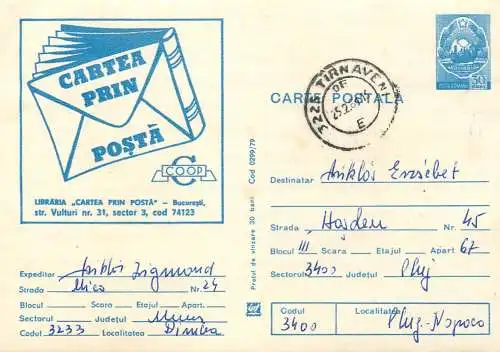 CARTEA
PRIN
POȘTĂ
COOP
LIBRĂRIA „CARTEA PRIN POSTĂ" – București,
str. Vulturi nr. 31, sector 3, cod 74123
Expeditor Miklós Zigmond
Strada Mica Nr. 24
Blocul Scara Etajul Apart.
Sectorul Județul Mureș
Codul 3233 Localitatea
Prețul de vînzare 30 bani Cod 0299/79
3225 TIRNAVENI
E
CARTE POSTALA
POSTA ROMANA
Destinatar Miklós Erzsébet
Strada Hajdeu Nr. 45
Blocul III Scara Etajul Apart 67
Sectorul 3400 Județul Cluj
Codul Localitatea
3400 Cluj-Napoca